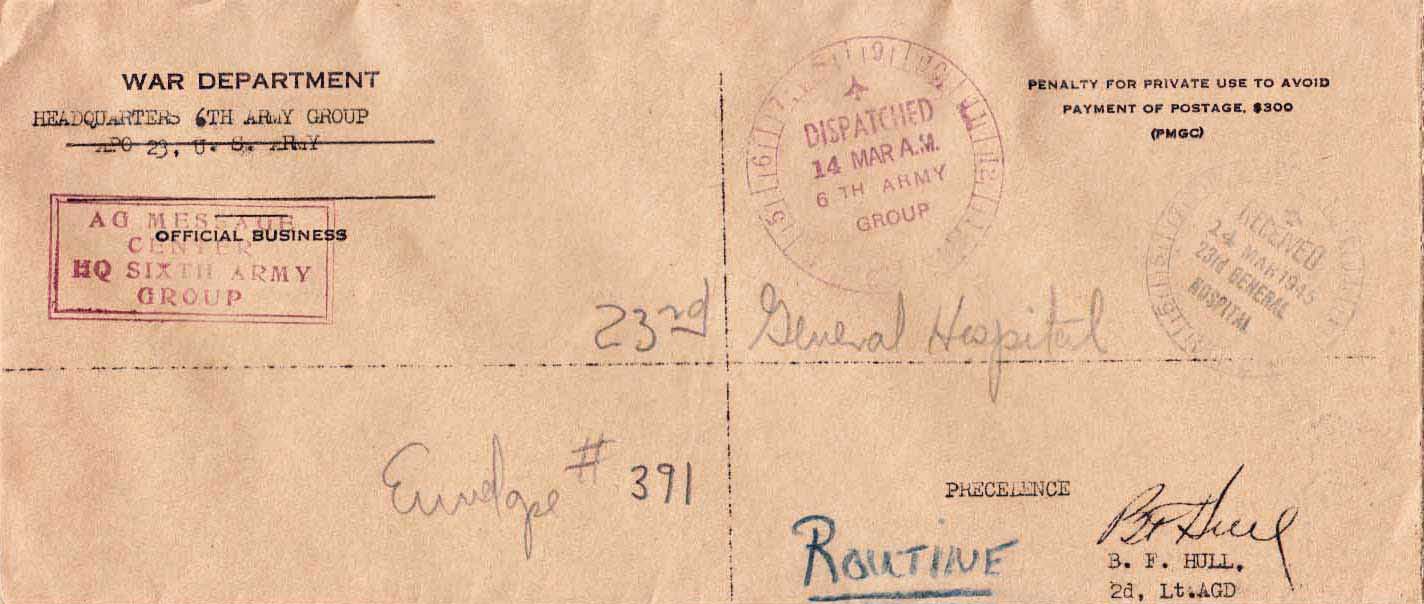 WAR DEPARTMENT
HEADQUARTERS 6TH ARMY GROUP
APO 23, U. S. ARMY
AG MESSAGE
CENTER
HQ SIXTH ARMY
GROUP
OFFICIAL BUSINESS
DISPATCHED
14 MAR A.M.
6 TH ARMY
GROUP
PENALTY FOR PRIVATE USE TO AVOID
PAYMENT OF POSTAGE, $300
(PMGC)
RECEIVED
24 MAR 1945
23rd GENERAL
HOSPITAL
23rd General Hospital
# 391
PRECEDENCE
ROUTINE
B. F. HULL.
2d, Lt.AGD